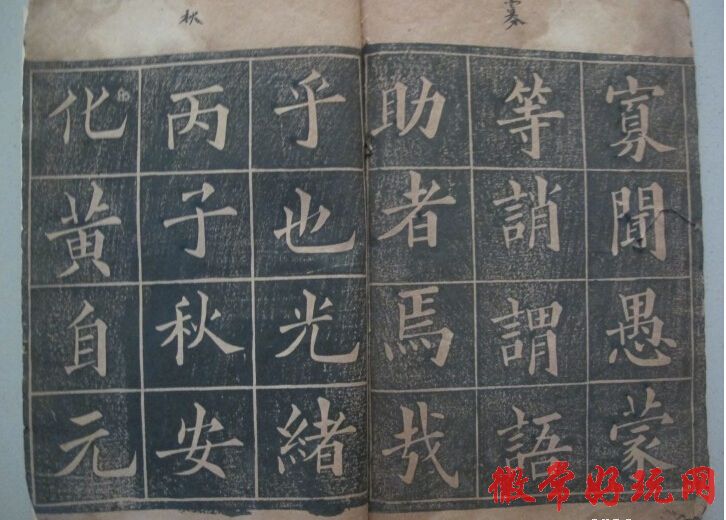 寡聞愚蒙
等誚謂語
助者焉哉
乎也光緒
丙子秋安
化黃自元
秋
徽常好玩网